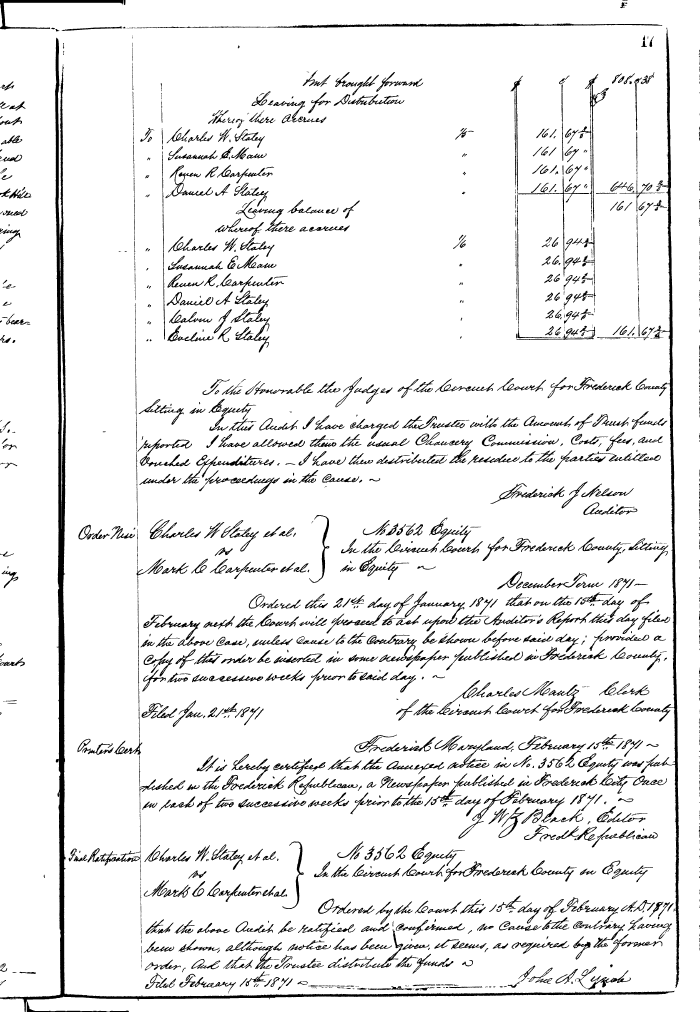 17
Amt brought forward $ c $ 808.38
Leaving for Distribution
Whereof there accrues
To Charles W. Staley 1/5 161. 67
" Susannah E. Main " 161 67 "
" Reuen R Carpenter 161. 67 "
" Daniel A Staley " 161. 67 " 646. 70
Leaving balance of 161 67
whereof there accrues
" Charles W. Staley 1/6 26 94
" Susannah E Main " 26. 94
" Reuen R. Carpenter 26 94
" Daniel A Staley " 26 94
" Calvin J Staley 26. 94
" Eveline R Staley " 26 94 161. 67
To the Honorable the Judges of the Circuit Court for Frederick County
Sitting in Equity
In this Audit I have charged the Trustee with the Amount of Trust funds
reported I have allowed them the usual Chancery Commission, Costs, fees, and
Vouched Expenditures. – I have then distributed the residue to the parties entitled
under the proceedings in the cause. ~
Frederick J Nelson
Auditor
Order Nisi Charles W Staley et al. } No 3562 Equity
vs In the Circuit Court for Frederick County, Sitting
Mark C Carpenter et al. in Equity ~
December Term 1871 –
Ordered this 21st day of January 1871 that on the 15th day of
February next the Court will proceed to act upon the Auditor's Report this day filed
in the above case, unless cause to the Contrary be shown before said day; provided a
copy of this order be inserted in some newspaper published in Frederick County,
for two successive weeks prior to said day. ~
Charles Mantz Clerk
Filed Jan. 21st 1871 of the Circuit Court for Frederick County
Printer's Cert Frederick Maryland, February 15th 1871 ~
It is hereby certified that the Annexed notice in No. 3562 Equity was pub
lished in the Frederick Republican, a Newspaper published in Frederick City Once
in each of two successive weeks prior to the 15th day of February 1871. ~
J W Z Black, Editor
Fredk Republican
Final Ratification Charles W. Staley et al. } No 3562 Equity
vs In the Circuit Court for Frederick County in Equity
Mark C Carpenter et al
Ordered by the Court this 15th day of February A.D. 1871.
that the above Audit be ratified and confirmed, no Cause to the Contrary having
been shown, although notice has been given, it seems, as required by the former
order, And that the Trustee distribute the funds ~
Filed February 15th 1871 ~ John A. Lynch